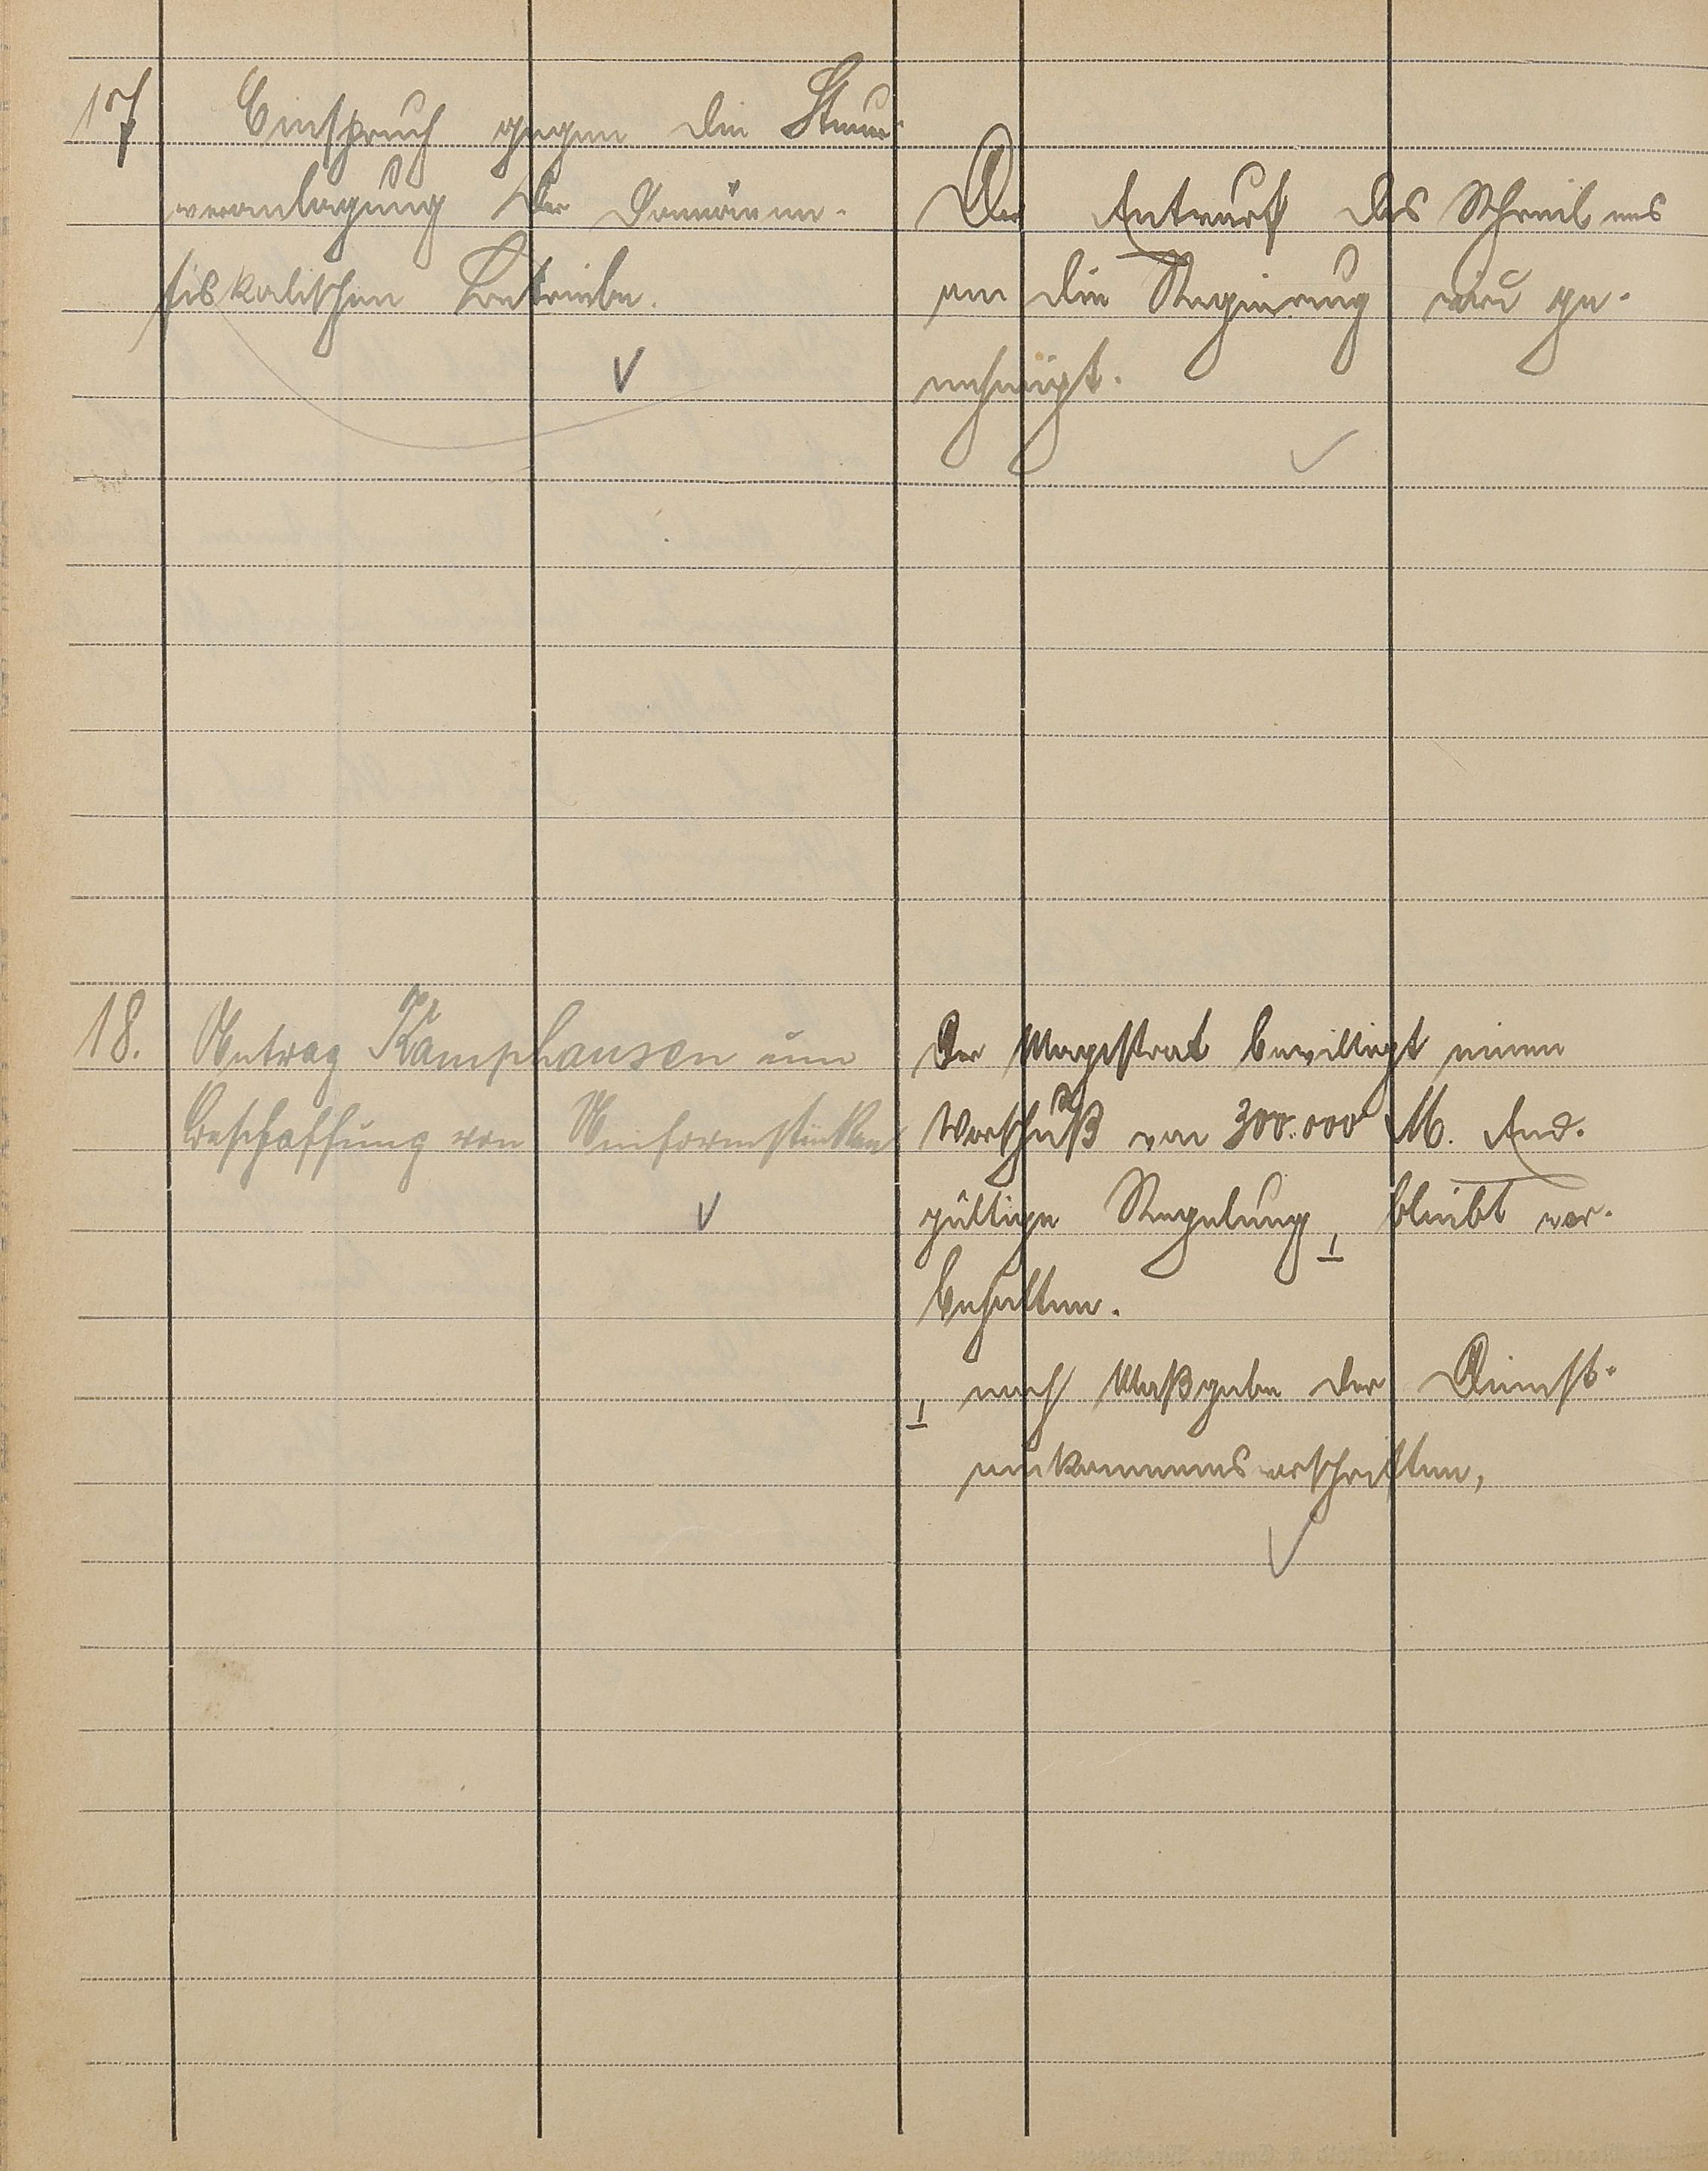 17
Einspruch gegen die Steuer-
veranlagung der Domänen-
fiskalischen Betriebe.
Der Entwurf des Schreibens
an die Regierung wird ge-
nehmigt.
18.
Antrag Kamphausen um
Beschaffung von Uniformstücken
Der Magistrat bewilligt einen
Vorschuß von 300.000 M. End-
gültige Regelung ⊥ bleibt vor-
behalten.
⊥ nach Maßgabe der Dienst-
einkommensvorschriften,